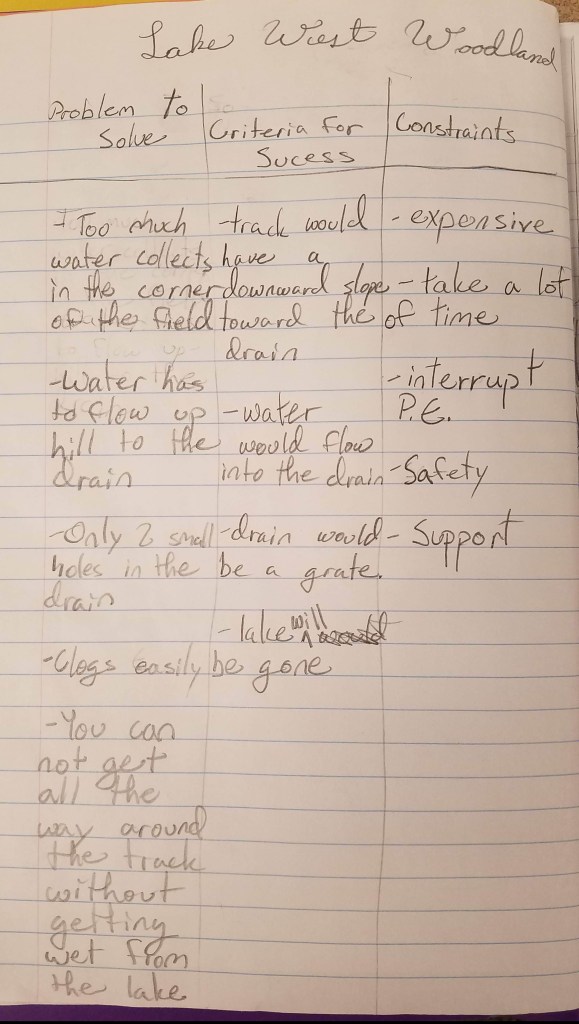 Lake West Woodland
Problem to
Solve
Criteria for
Sucess
Constraints
- Too much
water collects
in the corner
of the field
-Water has
to flow up
hill to the
drain
-Only 2 small
holes in the
drain
-Clogs easily
-You can
not get
all the
way around
the track
without
getting
wet from
the lake
-track would
have a
downward slope
toward the
drain
-water
would flow
into the drain
-drain would
be a grate.
-lake will
be gone
- expensive
- take a lot
of time
-interrupt
P.E.
-Safety
- Support